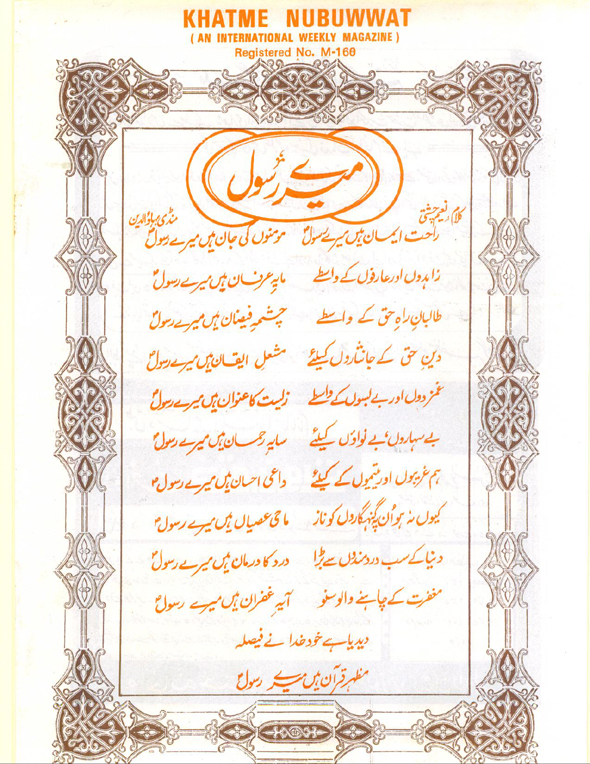 KHATME NUBUWWAT
( AN INTERNATIONAL WEEKLY MAGAZINE )
Registered No. M-160
میرے رسولؐ
کلام نعیم چشتی منڈی بہاؤالدین
راحت ایمان ہیں میرے رسولؐ مومنوں کی جان ہیں میرے رسولؐ
زاہدوں اور عارفوں کے واسطے مایۂ عرفان ہیں میرے رسولؐ
طالبانِ راہِ حق کے واسطے چشمۂ فیضان ہیں میرے رسولؐ
دینِ حق کے جانثاروں کیلئے مشعلِ ایقان ہیں میرے رسولؐ
غمزدوں اور بے بسوں کے واسطے زلیست کا عنوان ہیں میرے رسولؐ
بے سہاروں، بے نواؤں کیلئے سایہ رحمان ہیں میرے رسولؐ
ہم غریبوں اور یتیموں کے کیلئے داعی احسان ہیں میرے رسولؐ
کیوں نہ ہو اُن پر گنہگاروں کو ناز ماحی عصیاں ہیں میرے رسولؐ
دنیا کے سب دردمندوں سے بڑا درد کا درمان ہیں میرے رسولؐ
مغفرت کے چاہنے والو سنو آیۂ غفران ہیں میرے رسولؐ
دیدیا ہے خود خدا نے فیصلہ
مظہر قرآن ہیں میرے رسولؐ